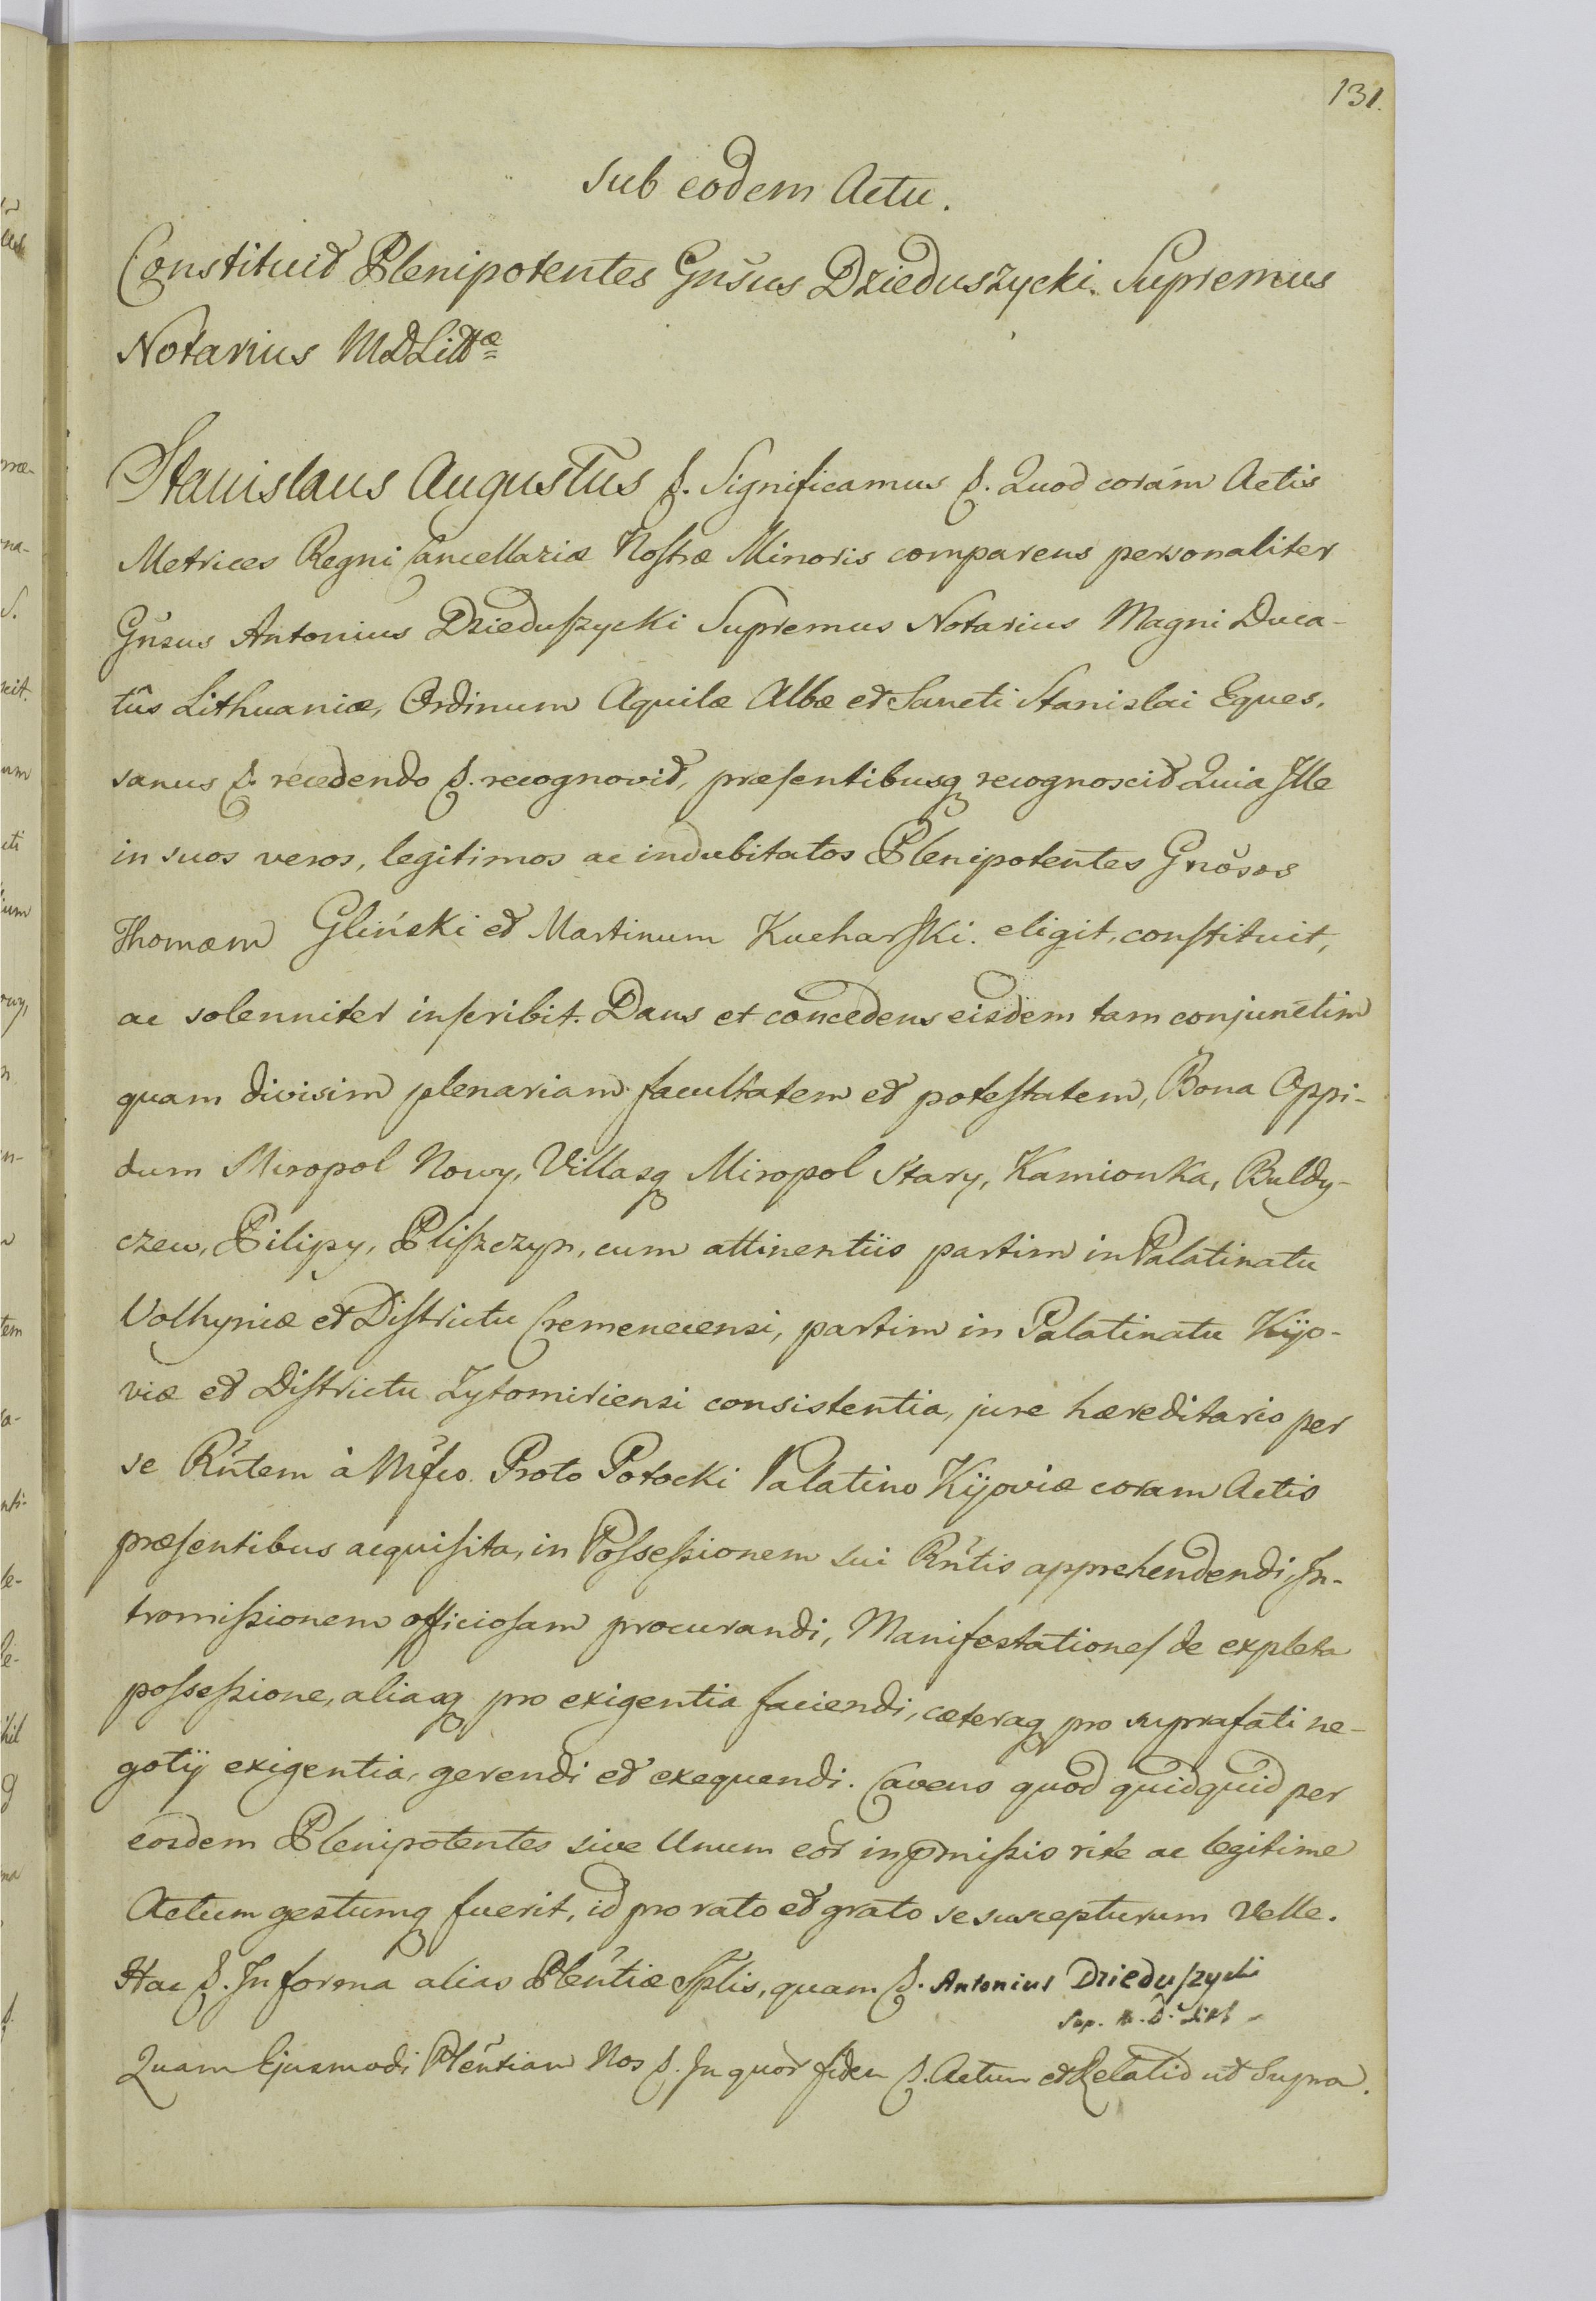 131.
Sub eodem Actu.
Constituit Plenipotentes Gn̄sus Dzieduszycki Supremus
Notarius MDLittæ
Stanislaus Augustus &. Significamus &. Quod coràm Actis
Metrices Regni Cancellariæ Nostræ Minoris comparens personaliter
Gn̄sus Antonius Dzieduszycki Supremus Notarius Magni Duca-
tûs Lithuaniæ, Ordinum Aquilæ Albæ et Sancti Stanislai Eques.
sanus &. recedendo &. recognovit, præsentibusq recognoscit Quia Ille
in suos veros, legitimos ac indubitatos Plenipotentes Gn̄osos
Thomam Gliński et Martinum Kucharski eligit, constituit,
ac solenniter inscribit. Dans et concedens eisdem tam conjunctim
quam divisim plenariam facultatem et potestatem, Bona Oppi-
dum Miropol Nowy, Villasq Miropol Stary, Kamionka, Buldy-
czew, Pilipy, Pliszczyn, cum attinentiis partim in Palatinatu
Volhyniæ et Districtu Cremenecensi, partim in Palatinatu Kijo-
viæ et Districtu Zytomiriensi consistentia, jure hæreditario per
se Rn̄tem à Mf̄co. Proto Potocki Palatino Kijoviæ coram Actis
præsentibus acquisita, in Possessionem sui Rn̄tis apprehendendi, In-
tromissionem officiosam procurandi, Manifestationes de expleta
possessione, aliasq pro exigentia faciendi, cæteraq pro supra fati ne-
gotij exigentia, gerendi et exequendi. Cavens quod quidquid per
eosdem Plenipotentes sive Unum eor̄ in p̄missis rite ac legitime
Actum gestumq fuerit, id pro rato et grato se suscepturum Velle.
Hac &. In forma alias Plēntiæ Splis, quam &. Antonius Dzieduszycki
Sup. N. D. Litt
Quam Ejusmodi Plēntiam Nos &. In quor̄ fidem &. Actum et Relatio ut Supra.